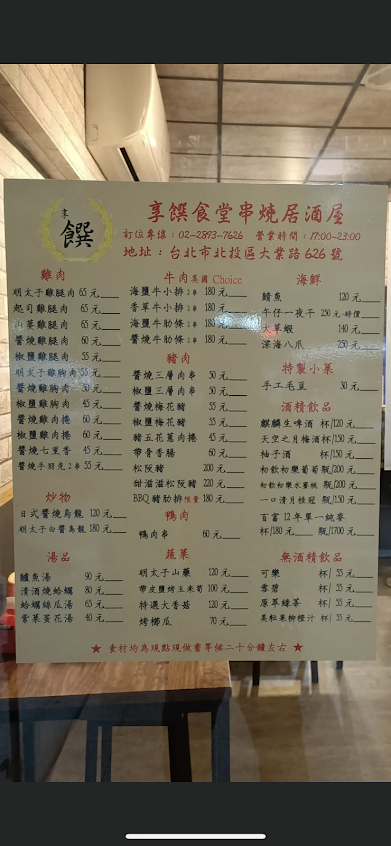 享
饌
享饌食堂串燒居酒屋
訂位專線：02-2893-7626 營業時間：17:00~23:00
地址：台北市北投區大業路626號
雞肉
明太子雞腿肉 65元
起司雞腿肉 65元
山藥雞腿肉 65元
醬燒雞腿肉 60元
椒鹽雞腿肉 55元
明太子雞胸肉 55元
醬燒雞胸肉 50元
椒鹽雞胸肉 45元
醬燒雞肉捲 60元
椒鹽雞肉捲 60元
醬燒七里香 45元
醬燒手羽先2串 55元
炒物
日式醬燒烏龍 120元
明太子白醬烏龍 180元
湯品
鱸魚湯 90元
清酒燒蛤蠣 80元
蛤蠣絲瓜湯 65元
紫菜蛋花湯 40元
牛肉美國 Choice
海鹽牛小排2串 180元
香草牛小排2串 180元
海鹽牛肋條2串 180元
醬燒牛肋條2串 180元
豬肉
醬燒三層肉串 50元
椒鹽三層肉串 50元
醬燒梅花豬 55元
椒鹽梅花豬 55元
豬五花蔥肉捲 45元
帶骨香腸 60元
松阪豬 200元
甜滋滋松阪豬 220元
BBQ豬肋排限量 180元
鴨肉
鴨肉串 60元
蔬菜
明太子山藥 120元
帶皮鹽烤玉米筍 100元
特選大香菇 120元
烤櫛瓜 70元
海鮮
鯖魚 120元
午仔一夜干 250元-時價
大草蝦 140元
深海八爪 250元
特製小菜
手工毛豆 30元
酒精飲品
麒麟生啤酒 杯/120元
天空之月梅酒 杯/150元
柚子酒 杯/150元
初飲初樂葡萄 瓶/200元
初飲初樂水蜜桃 瓶/200元
一口清月桂冠 瓶/150元
百富12年單一純麥
杯/180元 瓶/1700元
無酒精飲品
可樂 杯/55元
雪碧 杯/55元
原萃綠茶 杯/55元
美粒果柳橙汁 杯/55元
★ 食材均為現點現做需等候二十分鐘左右 ★